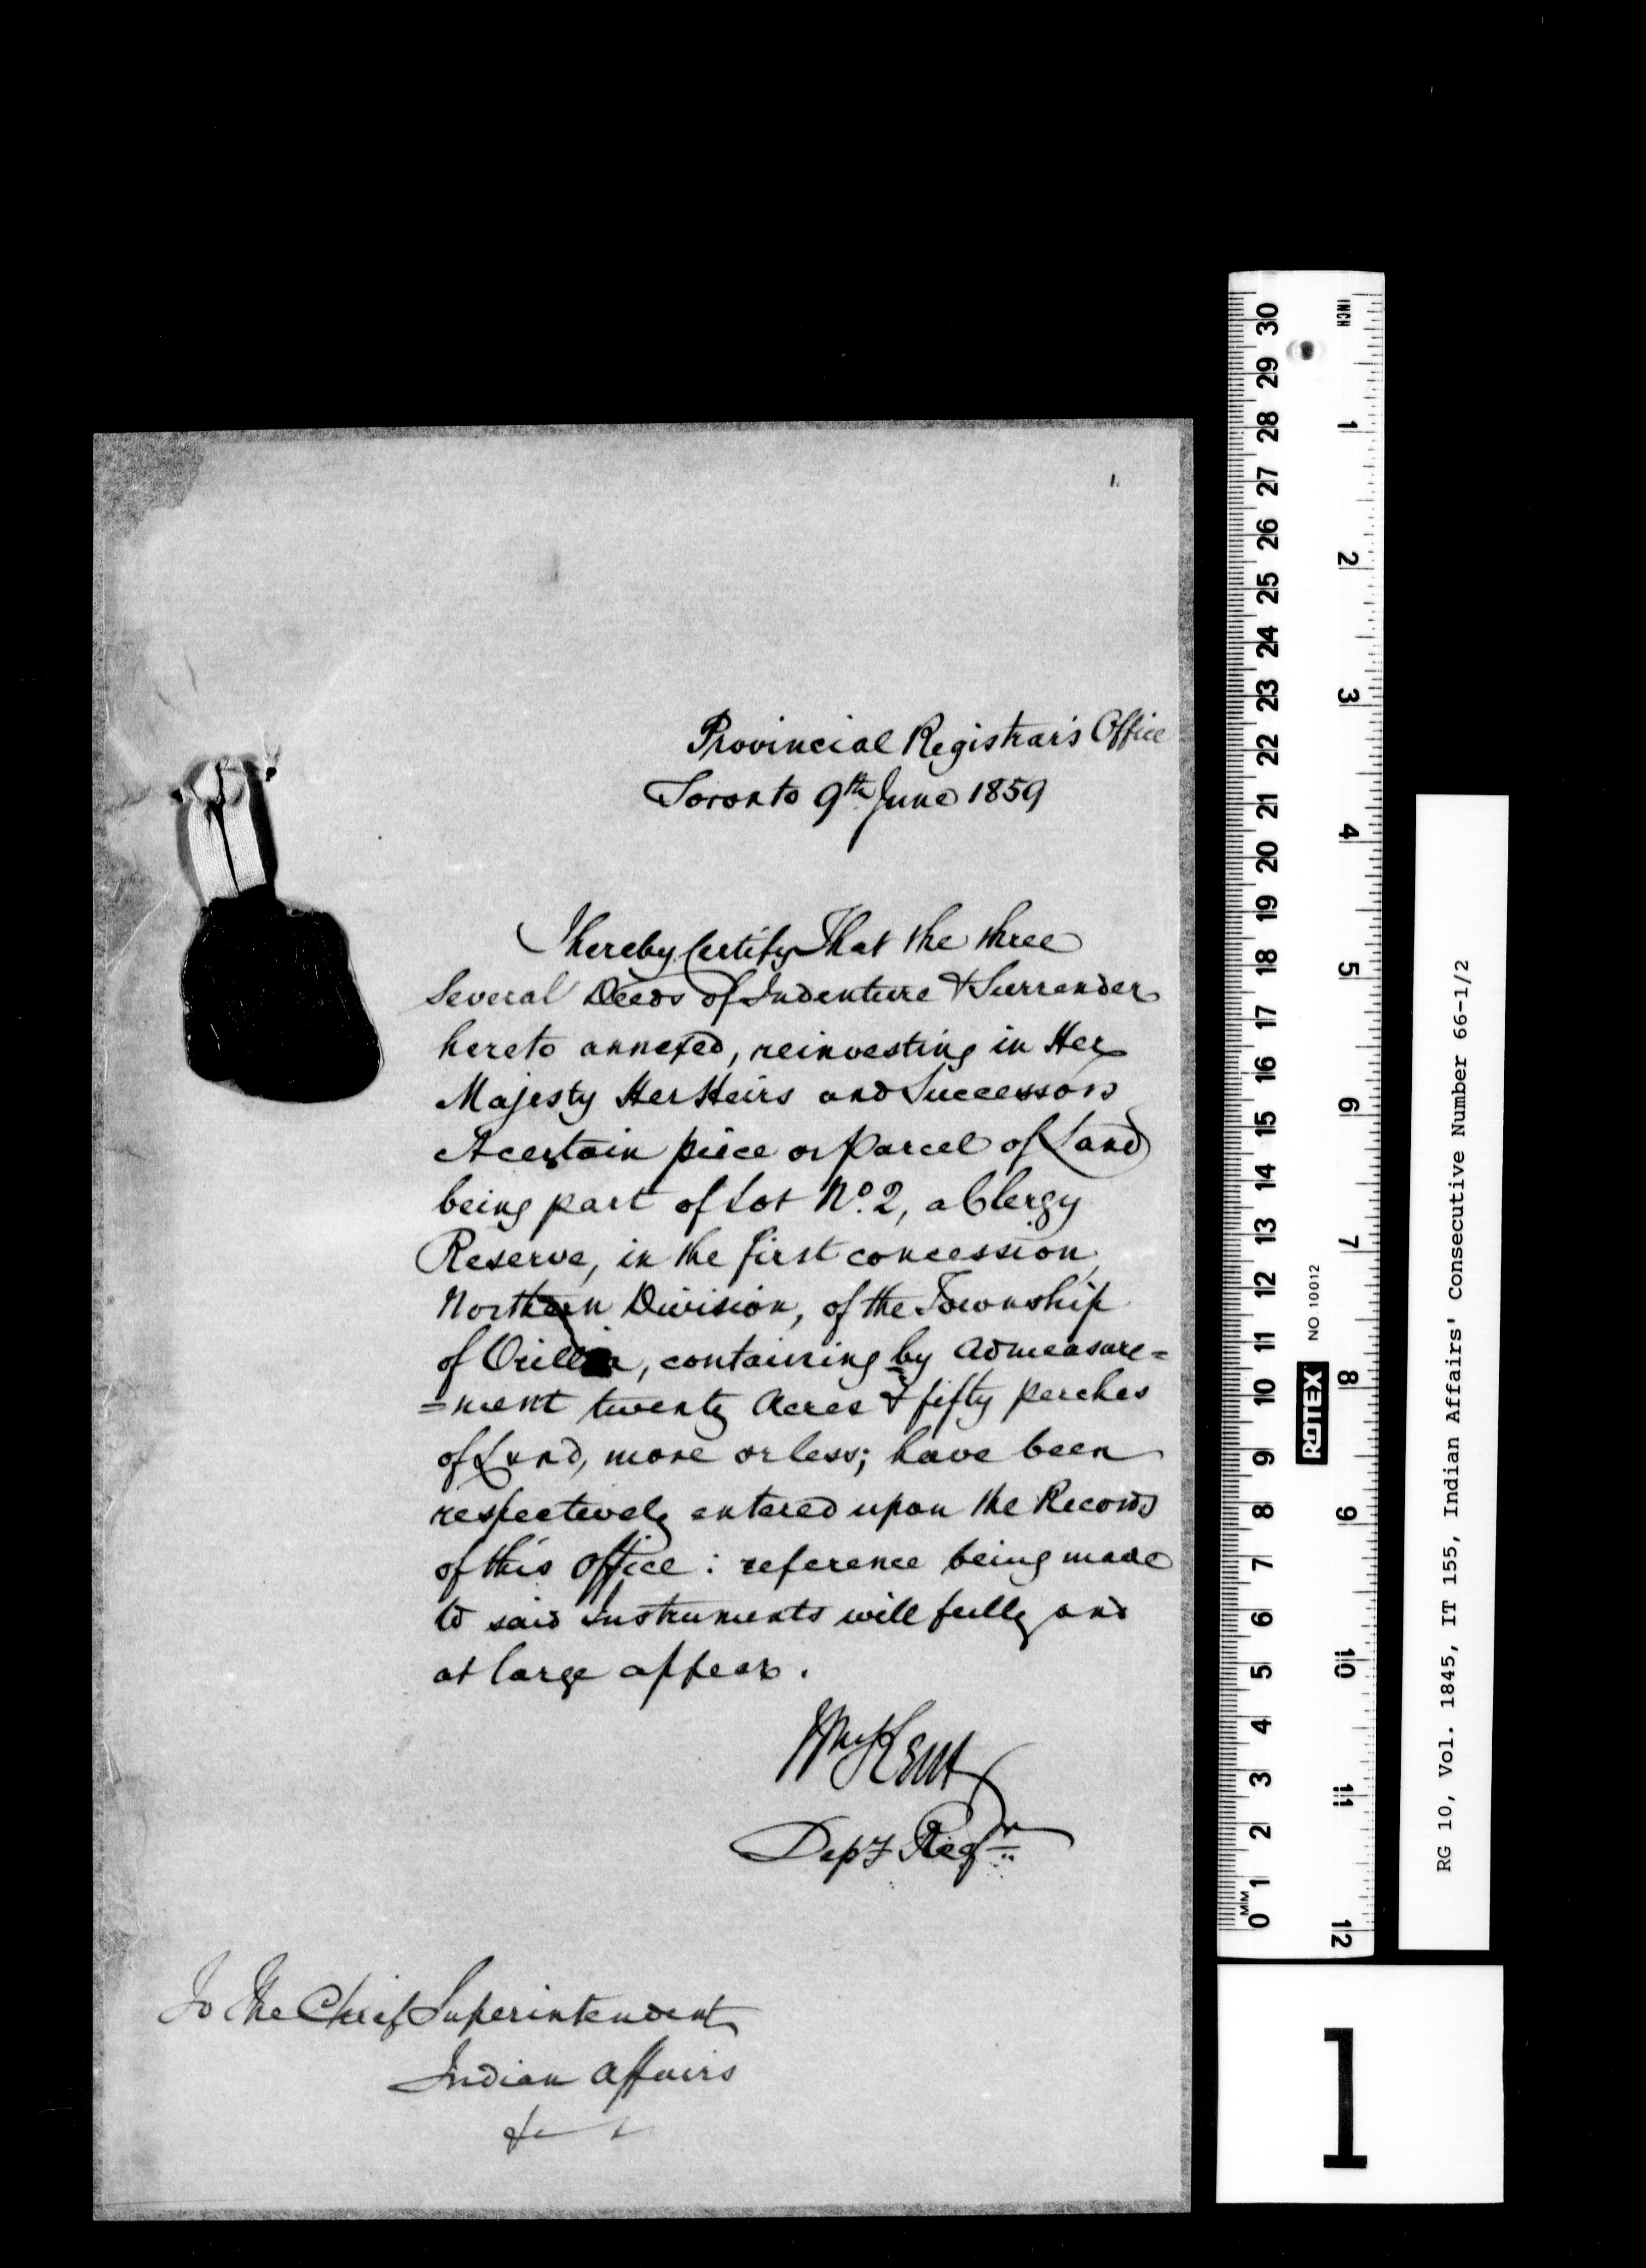 1.
Provincial Registrar's Office
Toronto 9th June 1859
I hereby Certify That the three
Several Deeds of Indenture & Surrender
hereto annexed, reinvesting in Her
Majesty Her Heirs and Successors
A certain piece or Parcel of Land
being part of Lot No. 2, a Clergy
Reserve, in the first concession,
Northern Division, of the Township
of Orillia, containing by admeasure=
=ment twenty Acres & fifty perches
of Land, more or less; have been
respectively entered upon the Records
of this Office: reference being made
to said Instruments will fully and
at large appear.
Wm Kent
Depy Regr
To The Chief Superintendent
Indian Affairs
INCH
1 2 3 4 5 6 7 8 9 10 11 12
30 29 28 27 26 25 24 23 22 21 20 19 18 17 16 15 14 13 12 11 10 9 8 7 6 5 4 3 2 1 0
MM
ROTEX NO. 10012
RG 10, Vol. 1845, IT 155, Indian Affairs' Consecutive Number 66-1/2
1